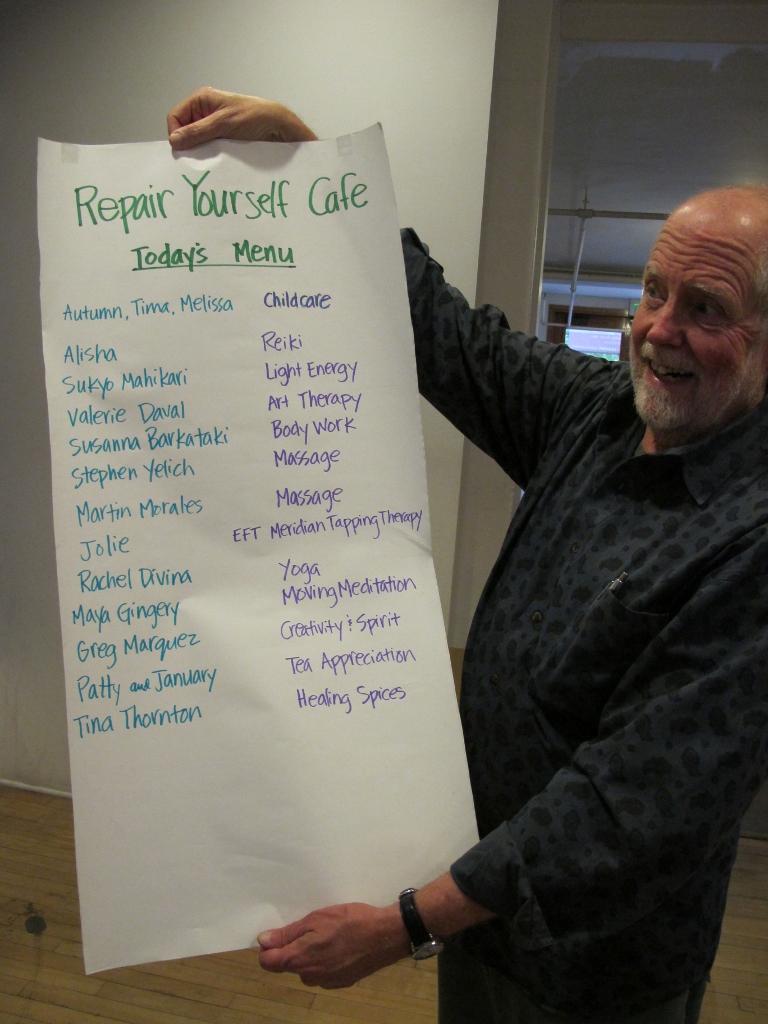 Repair Yourself Cafe
Today's Menu
Autumn, Tima, Melissa Childcare
Alisha Reiki
Sukyo Mahikari Light Energy
Valerie Daval Art Therapy
Susanna Barkataki Body Work
Stephen Yelich Massage
Martin Morales Massage
Jolie EFT Meridian Tapping Therapy
Rachel Divina Yoga
Maya Gingery Moving Meditation
Greg Marquez Creativity & Spirit
Patty and January Tea Appreciation
Tina Thornton Healing Spices